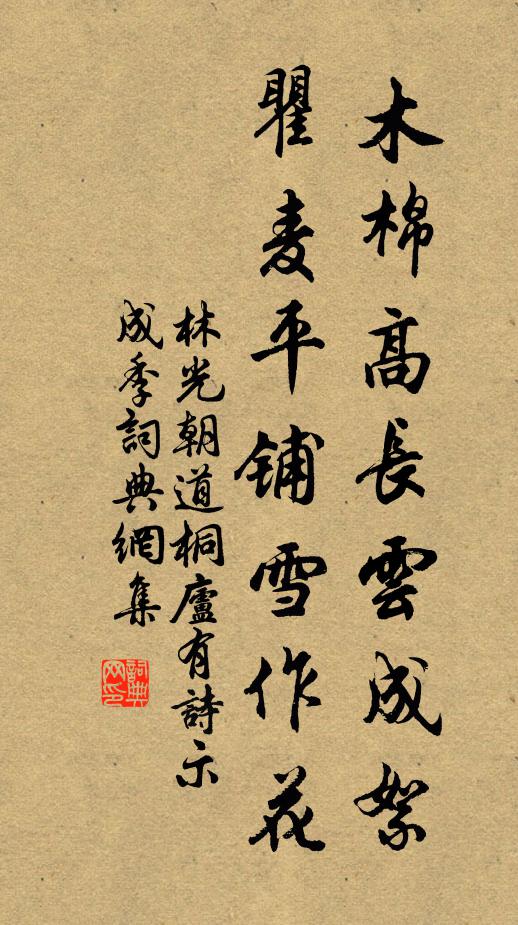 木棉高長雲成絮
瞿麦平铺雪作花
林光朝道桐廬有詩示
成季詞典網集
詞典
网印